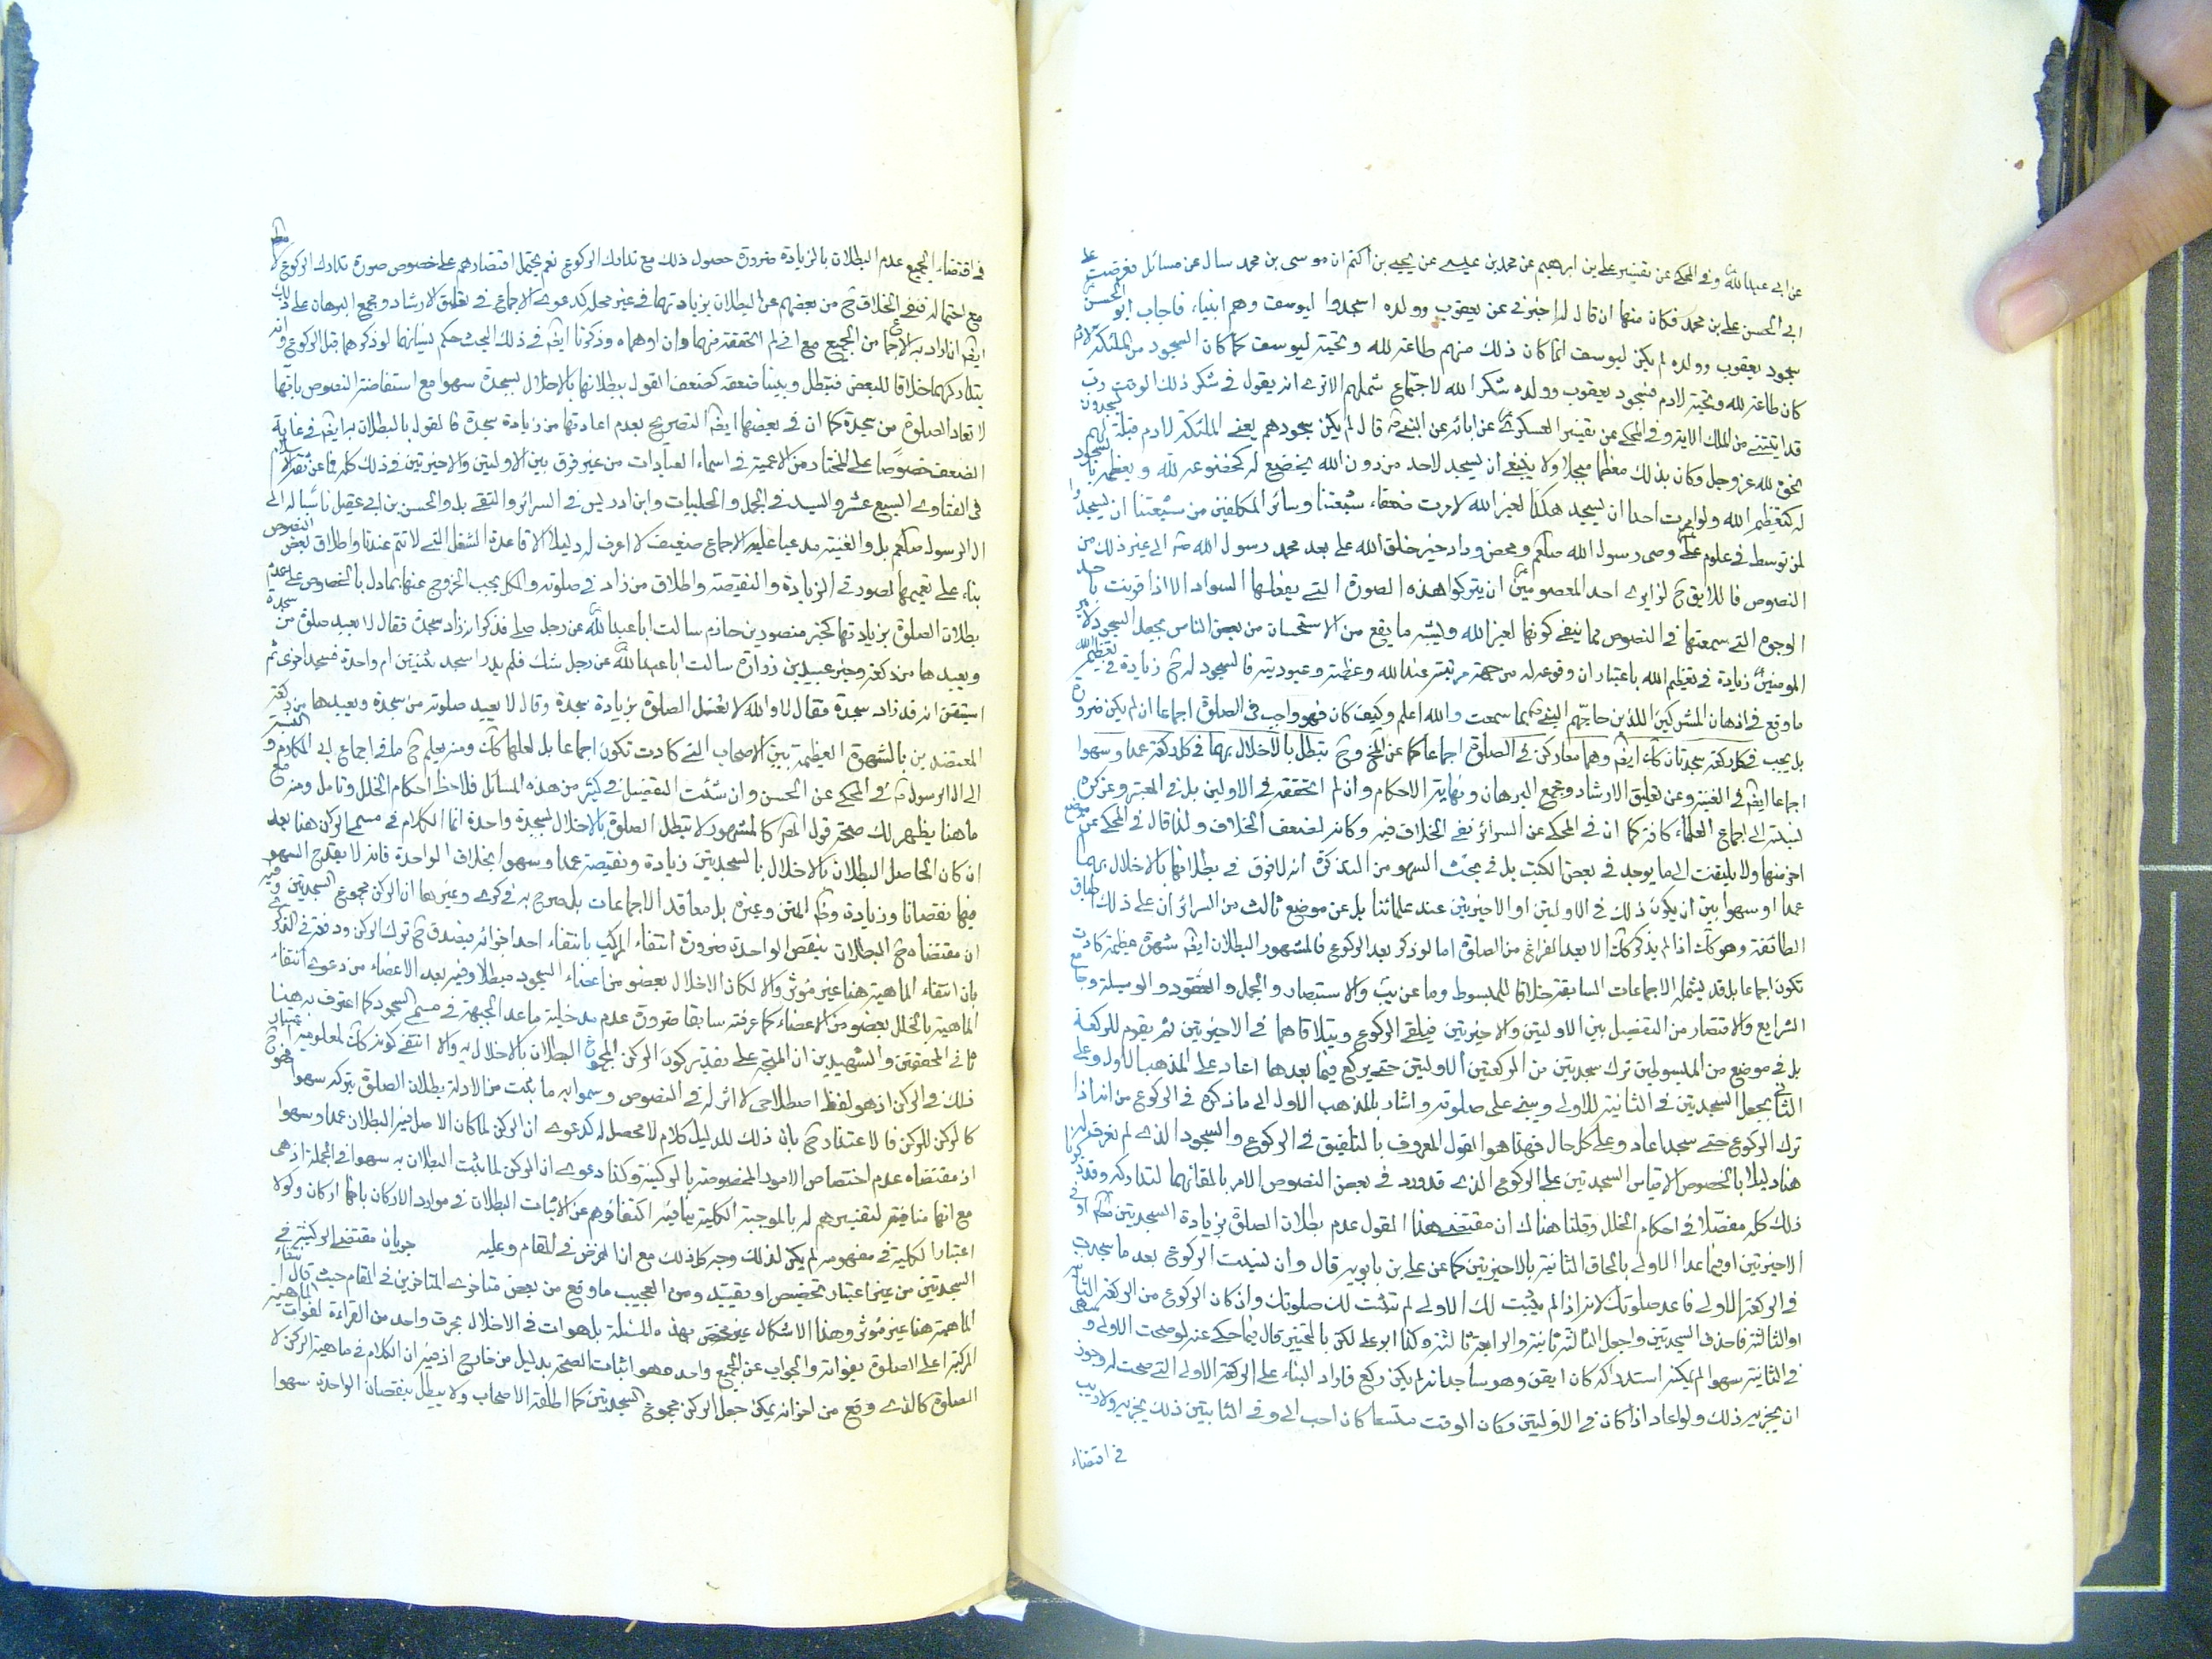 عن ابى عبد الله ع وفى المحكى عن تفسير على بن ابرهيم عن محمد بن عيسى عن يحيى بن اكثم ان موسى بن محمد سال عن مسائل فعرضت على
ابى الحسن على بن محمد فكان منها ان قال له اخبرنى عن يعقوب وولده اسجدوا ليوسف وهم انبياء فاجاب ابو الحسن
سجود يعقوب وولده لم يكن ليوسف انما كان ذلك منهم طاعة لله وتحية ليوسف كما كان السجود من الملئكة لادم
كان طاعة لله وتحية لادم فسجود يعقوب وولده شكرا لله لاجتماع شملهم الا ترى انه يقول فى شكر ذلك الوقت رب
قد اتيتنى من الملك الاية وفى المحكى عن تفسير العسكرى ع عن ابائه عن النبى ص قال لم يكن سجودهم يعنى الملئكة لادم قبلة لهم يسجدون
نحوه لله عز وجل وكان بذلك معظما مبجلا ولا ينبغى ان يسجد لاحد من دون الله يخضع له كخضوعه لله ويعظمه بالسجود
له كتعظيم الله ولو امرت احدا ان يسجد هكذا لغير الله لامرت ضعفاء شيعتنا وسائر المكلفين من شيعتنا ان يسجدوا
لمن توسط فى علوم على وصى رسول الله صلعم ومحض وداد خير خلق الله على بعد محمد رسول الله ص الى غير ذلك من
النصوص فاللايق ح لزايرى احد المعصومين ع ان يتركوا هذه الصورة التى يفعلها السواد الا اذا قرنت باحد
الوجوه التى سمعتها فى النصوص مما ينفى كونها لغير الله وليس ما يقع من الاستحسان من بعض الناس بجعل السجود لامير
المومنين ع زيادة فى تعظيم الله باعتبار ان وقوعه له من جهة مرتبته عند الله وعظمته وعبوديته فالسجود له ح زيادة فى تعظيم الله
ما وقع فى اذهان المشركين اللذين حاجهم النبى ص بما سمعت والله اعلم وكيف كان فهو واجب فى الصلوة اجماعا ان لم يكن ضرورة
بل يجب فى كل ركعة سجدتان كك ايضا وهما معا ركن فى الصلوة اجماعا كما عن و ح تبطل بالاخلال بهما فى كل ركعة عمدا وسهوا
اجماعا ايضا فى الغنية وعن تعليق الارشاد ومجمع البرهان ونهاية الاحكام وان لم اتحققه فى الاولين بل فى المعتبر وعن كره
نسبته الى اجماع العلماء كافة كما ان فى المحكى عن السرائر نفى الخلاف فيه وكانه لضعف الخلاف ولذا قال فى المحكى عن موضع
اخر منها ولا يلتفت الى ما يوجد فى بعض الكتب بل فى بحث السهو من التذكرة انه لا فرق فى بطلانها بالاخلال بهما
عمدا او سهوا بين ان يكون ذلك فى الاوليين او الاخيرتين عند علمائنا بل عن موضع ثالث من السرائر ان على ذلك اطباق
الطائفة وهو كك اذا لم يذكر كك الا بعد الفراغ من الصلوة اما لو ذكر بعد الركوع فالمشهور البطلان ايضا شهرة عظيمة كادت
تكون اجماعا بل قد يشمله الاجماعات السابقة خلافا للمبسوط وما عن والاستبصار والجمل والعقود والوسيلة وجامع
الشرايع والاقتصار من التفصيل بين الاوليين والاخيرتين فيلغى الركوع ويتلافاهما فى الاخيرتين ثم يقوم للركعة
بل فى موضع من المبسوط من ترك سجدتين من الركعتين الاوليتين حتى يركع فيما بعدها اعاد على المذهب الاول وعلى
الثانى يجعل السجدتين فى الثانية للاولى ويبنى على صلوته واشار بالمذهب الاول الى ما ذكره فى الركوع من انه اذا
ترك الركوع حتى سجد اعاد وعلى كل حال فهذا هو القول المعروف بالتلفيق فى الركوع والسجود الذى لم نعرف له
هنا دليلا بالخصوص الا قياس السجدتين على الركوع الذى قد ورد فى بعض النصوص الامر بالقائهما لتداركه وقد ذكرنا
ذلك كله مفصلا فى احكام الخلل وقلنا هناك ان مقتضى هذا القول عدم بطلان الصلوة بزيادة السجدتين او فى
الاخيرتين او فيما عدا الاولى بالحاق الثانية بالاخيرتين كما عن على بن بابويه قال وان نسيت الركوع بعد ما سجدت
فى الركعة الاولى فاعد صلوتك لانه اذا لم يثبت لك الاولى لم تثبت لك صلوتك وان كان الركوع من الركعة الثانية
او الثالثة فاحذف السجدتين واجعل الثالثة ثانية والرابعة ثالثة وكذا ابو على لكن بالتخيير قال فيما حكى عنه لو صحت الاولى وسهى
فى الثانية سهوا لم يمكنه استدراكه كان ايقن وهو ساجد انه لم يكن ركع فاراد البناء على الركعة الاولى التى صحت له رجوت
ان يجزيه ذلك ولو اعاد اذا كان فى الاوليين وكان الوقت متسعا كان احب الى وفى الثانيتين ذلك يجزيه ولا ريب
فى اقتضاء
فى اقتضاء الجميع عدم البطلان بالزيادة ضرورة حصول ذلك مع تدارك الركوع نعم يحتمل اقتصارهم على خصوص صورة تدارك الركوع لا
مع احتماله فنفى الخلاف ح من بعضهم عن البطلان بزيادتهما فى غير محله كدعوى الاجماع فى تعليق الارشاد ومجمع البرهان على ذلك
ايضا ان اراد به الاجماع من الجميع مع انى لم اتحققه منهما وان اوهماه وذكرنا ايضا فى ذلك البحث حكم نسيانهما لو ذكرهما قبل الركوع وانه
يتداركهما خلافا للبعض فتبطل وبينا ضعفه كضعف القول ببطلانها بالاخلال بسجدة سهوا مع استفاضة النصوص بانها
لا تعاد الصلوة من سجدة كما ان فى بعضها ايضا التصريح بعدم اعادتها من زيادة سجدة فالقول بالبطلان به ايضا فى غاية
الضعف خصوصا على المختار من الاعمية فى اسماء العبادات من غير فرق بين الاوليين والاخيرتين فى ذلك كله فما عن ثقة الاسلام
فى الفتاوى السبع عشر والسيد فى الجمل والحلبيات وابن ادريس فى السرائر والتقى بل والحسن بن ابى عقيل ناسبا له الى
ال الرسول صلعم بل والغنية مدعيا عليه الاجماع ضعيف لا اعرف له دليلا الا قاعدة الشغل التى لا تتم عندنا واطلاق بعض النصوص
بناء على تعميمها لصورتى الزيادة والنقيصة واطلاق من زاد فى صلوته والكل يجب الخروج عنها بما دل بالخصوص على عدم
بطلان الصلوة بزيادتها كخبر منصور بن حازم سالت ابا عبد الله ع عن رجل صلى فذكر انه زاد سجدة فقال لا يعيد صلوة من سجدة
ويعيدها من ركعة وخبر عبيد بن زرارة سالت ابا عبد الله ع عن رجل شك فلم يدر اسجد ثنتين ام واحدة فسجد اخرى ثم
استيقن انه قد زاد سجدة فقال لا والله لا تفسد الصلوة بزيادة سجدة وقال لا يعيد صلوته من سجدة ويعيدها من ركعة
المعتضدين بالشهرة العظيمة بين الاصحاب التى كادت تكون اجماعا بل لعلها كك ومنه يعلم ح ما فى اجماع ابى المكارم والنسبة
الى ال الرسول ص فى المحكى عن الحسن وان شئت التفصيل فى كثير من هذه المسائل فلاحظ احكام الخلل وتامل ومنه مع
ما هنا يظهر لك صحة قول المص كالمشهور لا تبطل الصلوة بالاخلال بسجدة واحدة انما الكلام فى مسمى الركن هنا بعد
ان كان الحاصل البطلان بالاخلال بالسجدتين زيادة ونقيصة عمدا وسهوا بخلاف الواحدة فانه لا يقدح السهو
فيها نقصانا وزيادة وظ المتن وغيره بل معاقد الاجماعات بل صرح به فى كرى وغيرها ان الركن مجموع السجدتين وفيه
ان مقتضاه ح البطلان بنقص الواحدة ضرورة انتفاء المركب بانتفاء احد اجزائه فيصدق ح ترك الركن ودفعه فى الذكرى
بان انتفاء الماهية هنا غير مؤثر والا لكان الاخلال بعضو من اعضاء السجود مبطلا وفيه بعد الاغضاء من دعوى انتفاء
الماهية بالخلل بعضو من الاعضاء كما عرفته سابقا ضرورة عدم مدخلية ما عد الجبهة فى مسمى السجود كما اعترف به هنا
ثانى المحققين والشهيدين ان المتجه على تقدير كون الركن المجموع البطلان بالاخلال به والا انتفى كونه كك لمعلومية اعتبار
ذلك فى الركن اذ هو لفظ اصطلاحى لا اثر له فى النصوص وسموا به ما ثبت من الادلة بطلان الصلوة بتركه سهوا
كالركن للركن فالاعتذار ح بان ذلك للدليل كلام لا محصل له كدعوى ان الركن لما كان الاصل فيه البطلان عمدا وسهوا
اذ مقتضاه عدم اختصاص الامور المخصوصة بالركنية وكذا دعوى ان الركن لما يثبت البطلان به سهوا فى الجملة اذ هى
مع انها منافية لتفسيرهم له بالموجبة الكلية ينافيه اكتفاؤهم عن الاثبات البطلان فى موارد الاركان بانها اركان ولولا
اعتبار الكلية فى مفهومه لم يكن لذلك وجه كل ذلك مع انا لم نر فى المقام وعليه جريان مقتضى الركنية فى
السجدتين من غير اعتبار تخصيص او تقييد ومن العجيب ما وقع من بعض متاخرى المتاخرين فى المقام حيث قال انتفاء
الماهية هنا غير مؤثر وهذا الاشكال غير مختص بهذه المسئلة بل هو ات فى الاخلال بحرف واحد من القراءة لفوات الماهية
المركبة اعنى الصلوة بفواته والجواب عن الجميع واحد وهو اثبات الصحة بدليل من خارج اذ فيه ان الكلام فى ماهية الركن لا
الصلوة كالذى وقع من اخر انه يمكن جعل الركن مجموع السجدتين كما اطلقه الاصحاب ولا يبطل بنقصان الواحدة سهوا